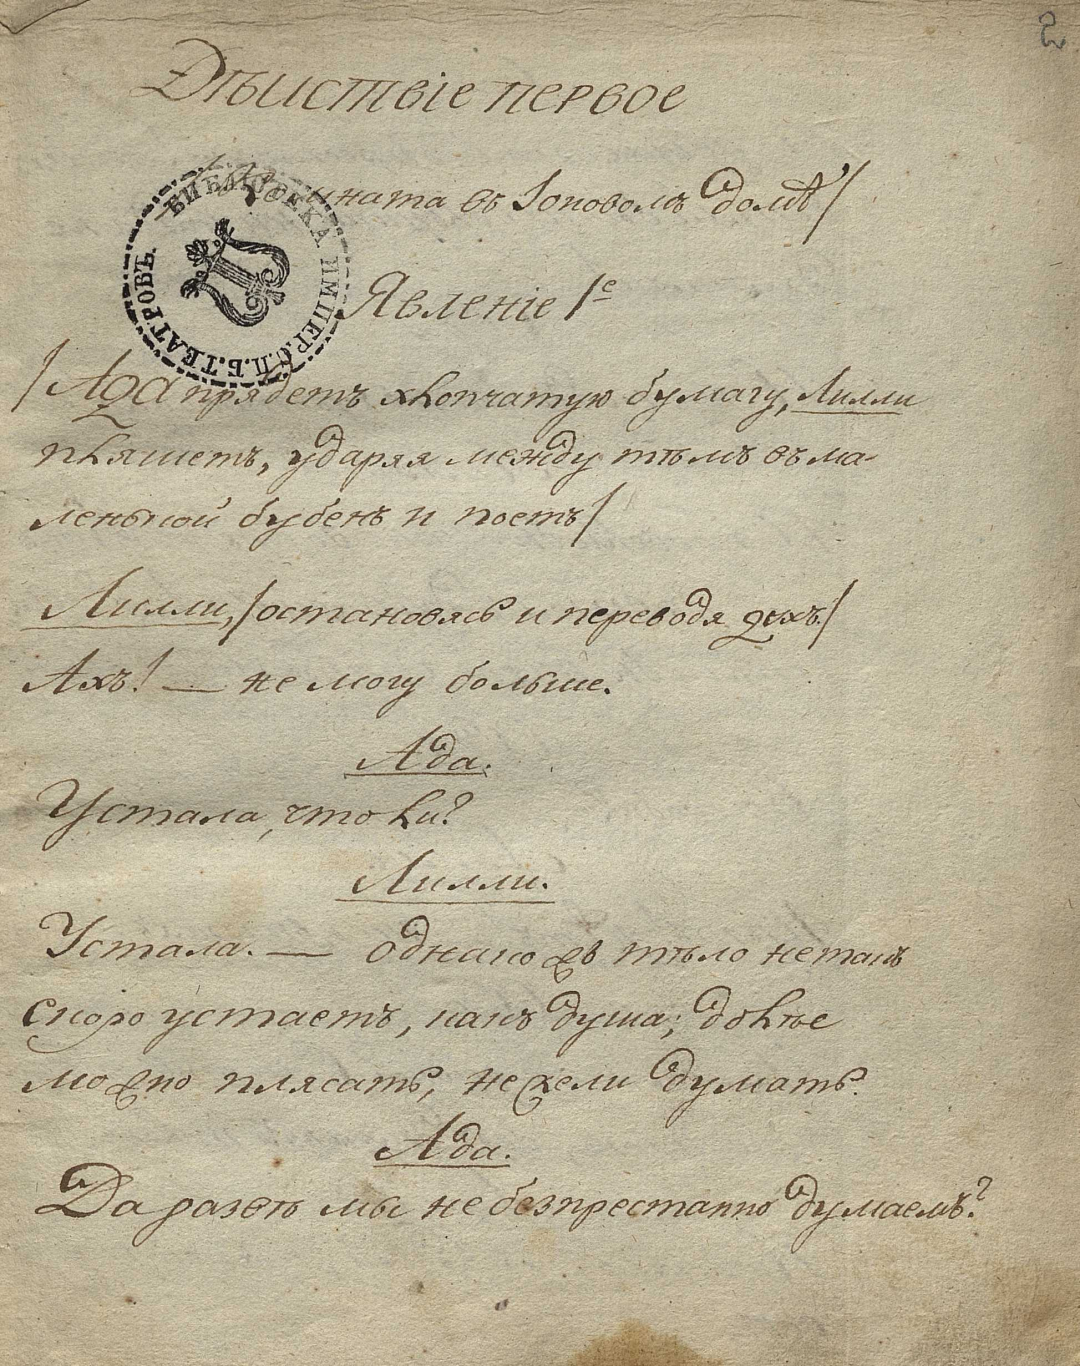 2
Дѣйствіе первое
/Комната въ Jоновомъ домѣ/
БИБЛІОТЕКА ИМПЕР. С.П.Б. ТЕАТРОВЪ.
Явленіе 1е
/Ада прядетъ хлопчатую бумагу, Лилли
пляшетъ, ударяя между тѣмъ въ ма-
ленькой бубенъ и поетъ/
Лилли, /остановясь и переводя духъ./
Ахъ! — не могу больше.
Ада.
Устала, что ли?
Лилли.
Устала. — однако жъ тѣло не такъ
скоро устаетъ, какъ душа; долѣе
можно плясать, нежели думать.
Ада.
Да развѣ мы не безпрестанно думаемъ?